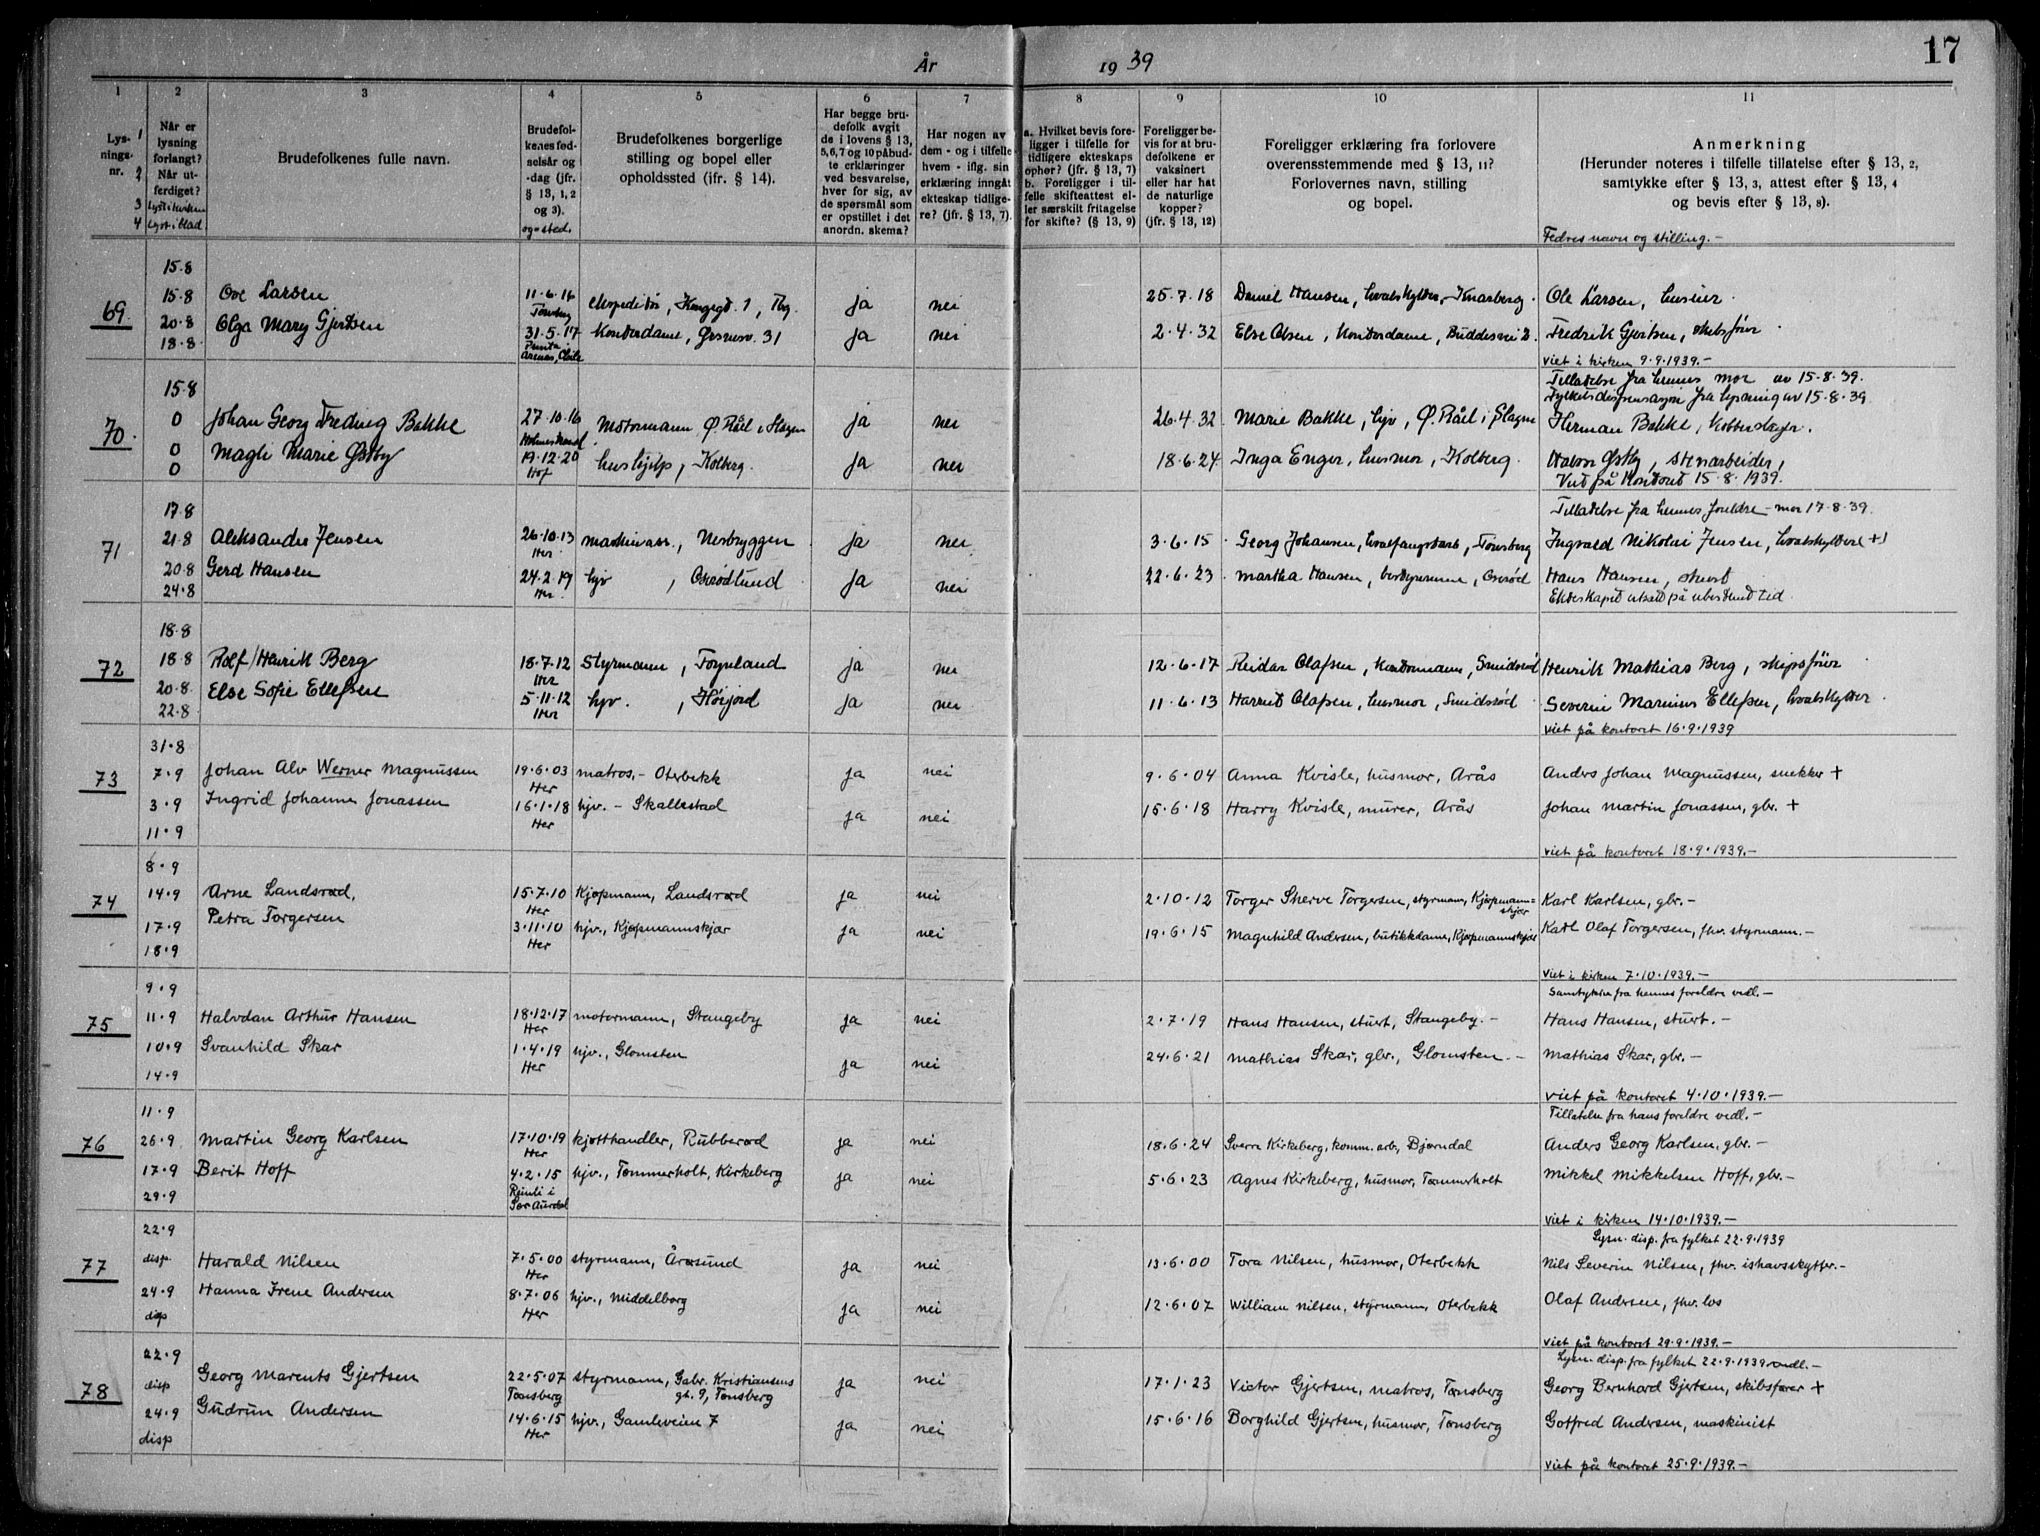 17
År 1939
1 2 3 4 5 6 7 8 9 10 11
Lysningsnr. 1 2 3 4
Når er lysning forlangt? Når utferdiget? Lyst i kirken Lyst i blad
Brudefolkenes fulle navn.
Brudefolkenes fødselsår og -dag (jfr. § 13, 1, 2 og 3). og -sted.
Brudefolkenes borgerlige stilling og bopel eller opholdssted (jfr. § 14).
Har begge brudefolk avgit de i lovens § 13, 5, 6, 7 og 10 påbudte erklæringer ved besvarelse, hver for sig, av de spørsmål som er opstillet i det anordn. skema?
Har nogen av dem - og i tilfelle hvem - iflg. sin erklæring inngått ekteskap tidligere? (jfr. § 13, 7).
a. Hvilket bevis foreligger i tilfelle for tidligere ekteskaps ophør? (jfr. § 13, 7) b. Foreligger i tilfelle skifteattest eller særskilt fritagelse for skifte? (§ 13, 9)
Foreligger bevis for at brudefolkene er vaksinert eller har hat de naturlige kopper? (jfr. § 13, 12)
Foreligger erklæring fra forlovere overensstemmende med § 13, 11? Forlovernes navn, stilling og bopel.
Anmerkning (Herunder noteres i tilfelle tillatelse efter § 13, 2, samtykke efter § 13, 3, attest efter § 13, 4 og bevis efter § 13, 8).
Fedres navn og stilling.-
15.8
69 15.8 Ove Larsen 11.6.16 Tønsberg ekspeditør, Kongsgt. 1, Tbg. ja nei 25.7.18 Daniel Hansen, hvalskytter, Knarberg Ole Larsen, huseier.
20.8 Olga Mary Gjertsen 31.5.17 Punta Arenas, Chile Kontordame, 31 ja nei 2.4.32 Else Olsen, kontordame, Fredrik Gjertsen, skibsfører
18.8
viet i kirken 9.9.1939.-
15.8 Tilladelse fra hennes mor av 15.8.39.
fra lysning av 15.8.39
70. 0 Johan Georg Bakke 27.10.16 Holmestrand Motormann, Ø. Råel i Slagen ja nei 26.4.32 Marie Bakke, hjv, Ø. Råel i Slagen Herman Bakke,
0 Magli Marie Østby 19.12.20 Hof hushjelp, Kolberg. ja nei 18.6.24 Inga Enger, husmor, Kolberg. Østby, stenarbeider,
0 Viet på kontoret 15.8.1939.
17.8 Tilladelse fra hennes foreldre - mor 17.8.39.
71 21.8 Aleksander Jensen 26.10.13 Her. maskinass., Nesbryggen ja nei 3.6.15 Georg Johansen, hvalfangstarb, Tønsberg Ingvald Nikolai Jensen, hvalskytter +
20.8 Gerd Hansen 24.2.19 Her. hjv, Oserødlund ja nei 22.6.23 Martha Hansen, bestyrerinne, Oserød Hans Hansen, stuert
24.8 Ekteskapet utsatt på ubestemt tid.
18.8
72 18.8 Rolf Henrik Berg 18.7.12 Her Styrmann, Føynland ja nei 12.6.17 Reidar Olafsen, kontormann, Smidsrød Henrik Mathias Berg, skipsfører
20.8 Else Sofie Ellefsen 5.11.12 Her hjv., Høijord ja nei 11.6.13 Harriet Olafsen, husmor, Smidsrød Severin Marinius Ellefsen, hvalskytter
22.8 viet på kontoret 16.9.1939
31.8
73 7.9 Johan Alv Werner Magnussen 19.6.03 Her matros,- Oterbekk ja nei 9.6.04 Anna Kvisle, husmor, Arås Anders Johan Magnussen, snekker +
3.9 Ingrid Johanne Jonassen 16.1.18 Her hjv. - Skallestad ja nei 15.6.18 Harry Kvisle, murer, Arås Johan Martin Jonassen, gbr. +
11.9
viet på kontoret 18.9.1939.-
8.9
74 14.9 Arne Landsrød, 15.7.10 Her Kjøpmann, Landsrød ja nei 2.10.12 Torger Sherve Torgersen, styrmann, Kjøpmannsskjær Karl Karlsen, gbr.-
17.9 Petra Torgersen 3.11.10 Her hjv., Kjøpmannskjær ja nei 19.6.15 Magnhild Andersen, butikkdame, Kjøpmannskjær Karl Olaf Torgersen, fhv. styrmann.-
18.9
viet i kirken 7.10.1939.-
9.9 Samtykke fra hennes foreldre vedl.-
75 11.9 Halvdan Arthur Hansen 18.12.17 Her motormann, Stangeby ja nei 2.7.19 Hans Hansen, stuert, Stangeby.- Hans Hansen, stuert.-
10.9 Svanhild Skar 1.4.19 Her hjv., Glomsten ja nei 24.6.21 Mathias Skar, gbr., Glomsten.- Mathias Skar, gbr.-
14.9
viet på kontoret 4.10.1939.-
11.9 Tillatelse fra hans foreldre vedl.-
76 26.9 Martin Georg Karlsen 17.10.19 Her kjøtthandler, Rubberød ja nei 18.6.24 Sverre Kirkeberg, komm. arb, Bjørndal Anders Georg Karlsen, gbr.-
17.9 Berit Hoff 4.2.15 Reinli i Sør Aurdal hjv., Tømmerholt, Kirkeberg ja nei 5.6.23 Agnes Kirkeberg, husmor, Tømmerholt Mikkel Mikkelsen Hoff, gbr.-
29.9
viet i kirken 14.10.1939.-
22.9 Lysn. disp. fra fylket 22.9.1939
77 disp. Harald Nilsen 7.5.00 Her styrmann, Årøsund ja nei 13.6.00 Tora Nilsen, husmor, Oterbekk Nils Severin Nilsen, fhv. ishavsskytter.-
24.9 Hanna Irene Andersen 8.7.06 Her hjv., Middelborg ja nei 12.6.07 William Nilsen, styrmann, Oterbekk Olaf Andersen, fhv. los
disp
viet på kontoret 29.9.1939.-
22.9 Lysn. disp. fra fylket 22.9.1939 vedl.-
78 disp Georg Marents Gjertsen 22.5.07 Tønsberg styrmann, Gabr. Kristiansens gt. 9, Tønsberg ja nei 17.1.23 Victor Gjertsen, matros, Tønsberg Georg Bernhard Gjertsen, skibsfører +
24.9 Gudrun Andersen 14.6.15 Her hjv., Gamleveien 7 ja nei 15.6.16 Borghild Gjertsen, husmor, Tønsberg Gotfred Andersen, maskinist
disp
viet på kontoret 25.9.1939.-